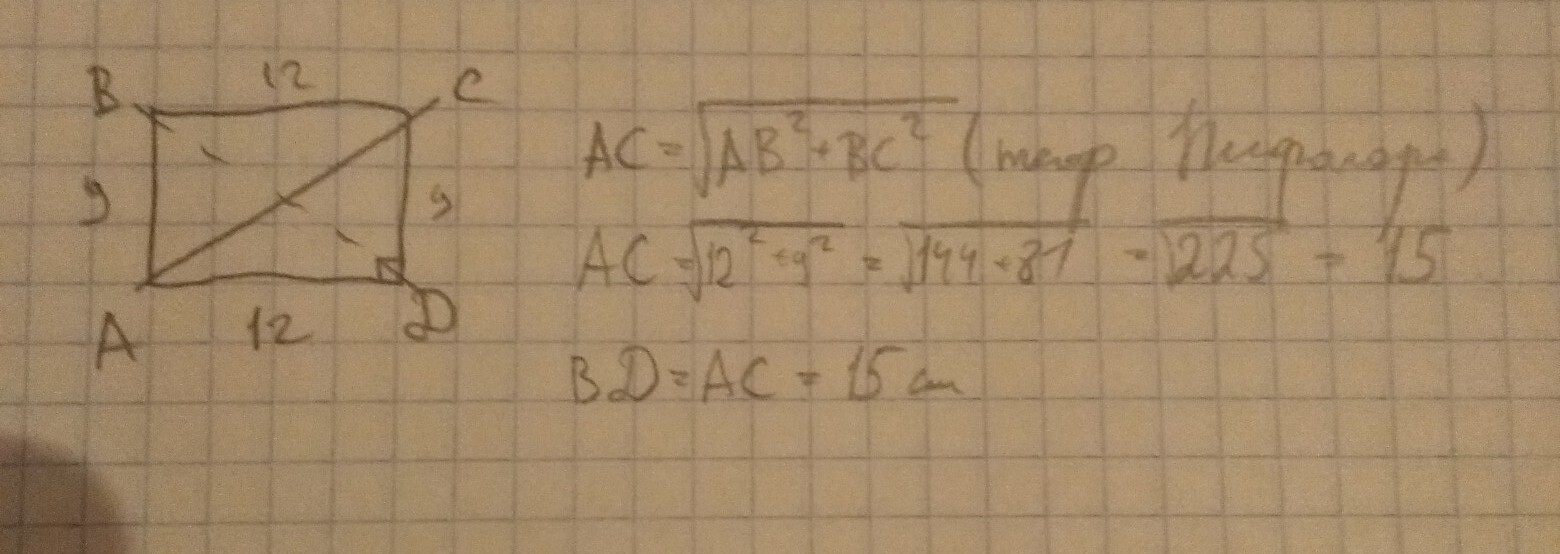 B 12 C
9 9
A 12 D
AC = √AB² + BC² (теор Пифагора)
AC = √12² + 9² = √144 + 81 = √225 = 15
BD = AC = 15 см